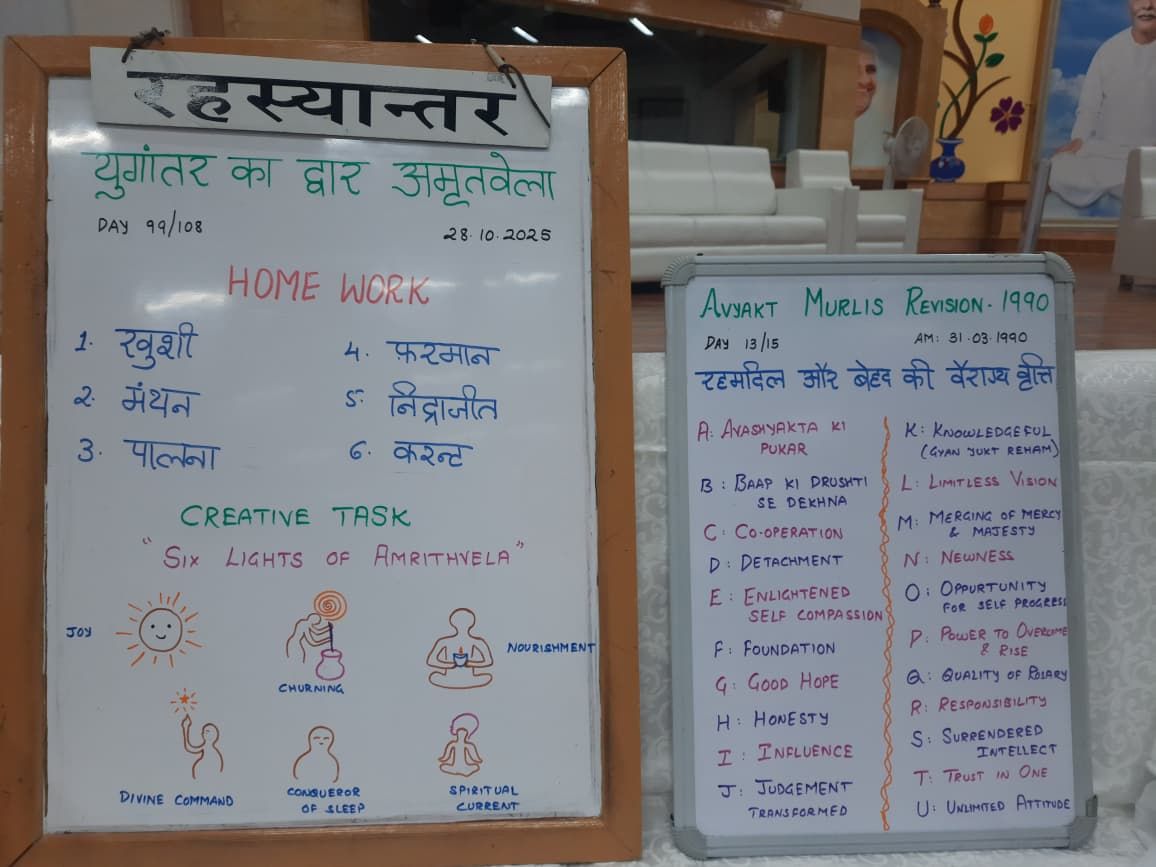 रहस्यान्तर
युगांतर का द्वार अमृतवेला
DAY 99/108
28.10.2025
HOME WORK
1. खुशी
2. मंथन
3. पालना
4. फरमान
5. निद्राजीत
6. करन्ट
CREATIVE TASK
"SIX LIGHTS OF AMRITHVELA"
JOY
CHURNING
NOURISHMENT
DIVINE COMMAND
CONQUEROR
OF SLEEP
SPIRITUAL
CURRENT
AVYAKT MURLIS REVISION - 1990
DAY 13/15
AM: 31.03.1990
रहमदिल और बेहद की वैराग्य वृत्ति
A: AVASHYAKTA KI
PUKAR
B: BAAP KI DRUSHTI
SE DEKHNA
C: CO-OPERATION
D: DETACHMENT
E: ENLIGHTENED
SELF COMPASSION
F: FOUNDATION
G: GOOD HOPE
H: HONESTY
I: INFLUENCE
J: JUDGEMENT
TRANSFORMED
K: KNOWLEDGEFUL
(GYAN YUKT REHAM)
L: LIMITLESS VISION
M: MERGING OF MERCY
& MAJESTY
N: NEWNESS
O: OPPURTUNITY
FOR SELF PROGRESS
P: POWER TO OVERCOME
& RISE
Q: QUALITY OF ROSARY
R: RESPONSIBILITY
S: SURRENDERED
INTELLECT
T: TRUST IN ONE
U: UNLIMITED ATTITUDE